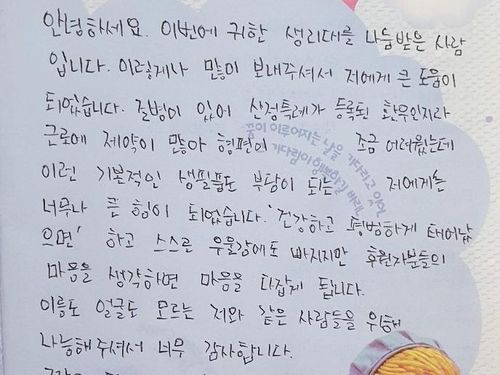 안녕하세요. 이번에 귀한 생리대를 나눔받은 사람
입니다. 이렇게나 많이 보내주셔서 저에게 큰 도움이
되었습니다. 질병이 있어 산정특례가 등록된 환우인지라
근로에 제약이 많아 형편이 조금 어려웠는데
꿈이 이루어지는 날을 기다리고 있어
기다림이 행복하길 바래
이런 기본적인 생필품도 부담이 되는 저에게는
너무나 큰 힘이 되었습니다. '건강하고 평범하게 태어났
으면' 하고 스스로 우울감에도 빠지지만 후원자분들의
마음을 생각하면 마음을 다잡게 됩니다.
이름도 얼굴도 모르는 저와 같은 사람들을 위해
나눔해주셔서 너무 감사합니다.